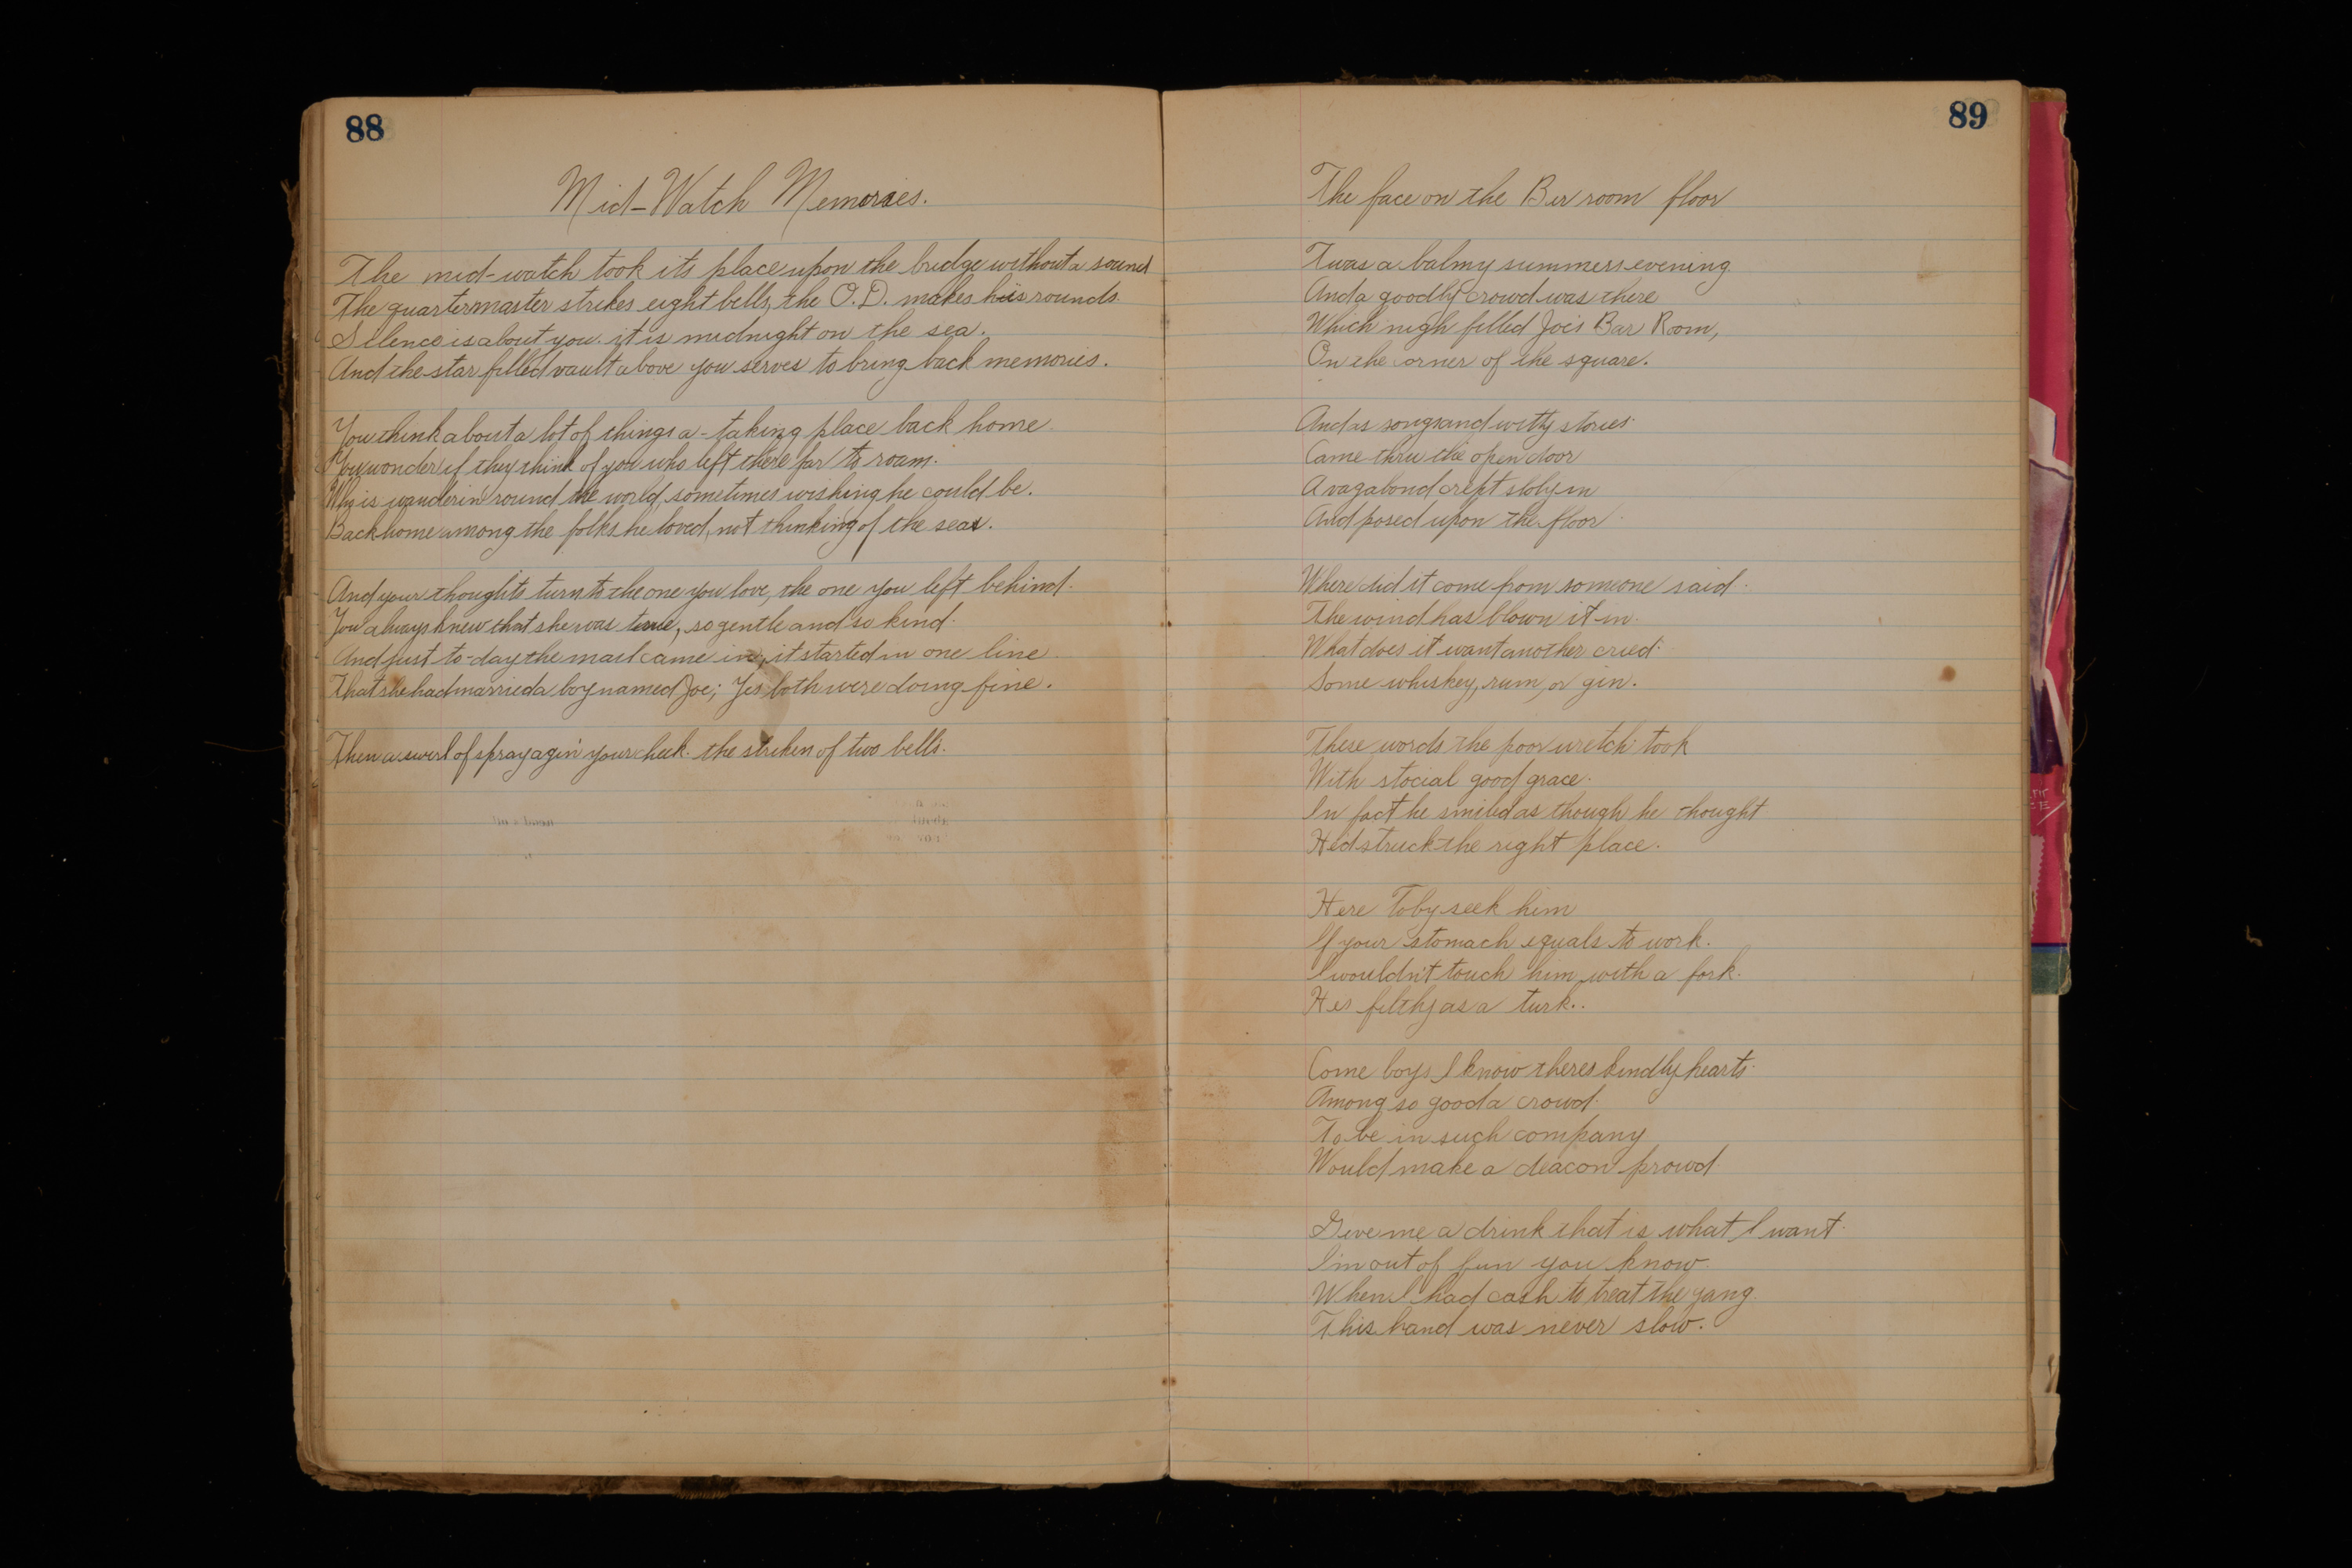 88
Mid-Watch Memories.
The mid-watch took its place upon the bridge without a sound
The quartermaster strikes eight bells, the O.D. makes his rounds.
Silence is about you. it is midnight on the sea.
And the star filled vault above you serves to bring back memories.
You think about a lot of things a-taking place back home
You wonder if they think of you who left there far to roam.
Who is wanderin' round the world, sometimes wishing he could be.
Back home among the folks he loved, not thinking of the seas.
And your thoughts turn to the one you love, the one you left behind.
You always knew that she was true, so gentle and so kind.
And just to-day the mail came in, it started in one line
That she had married a boy named Joe; Yes both were doing fine.
Then a swirl of spray agin' your cheek. the striken of two bells.
89
The face on the Bar room floor
Twas a balmy summers evening
And a goodly crowd was there
Which nigh filled Joe's Bar Room,
On the corner of the square.
And as songs and witty stories
Came thru the open door
A vagabond crept sloly in
And posed upon the floor
Where did it come from someone said.
The wind has blown it in.
What does it want another cried.
Some whiskey, rum, or gin.
These words the poor wretch took
With stocial good grace.
In fact he smiled as though he thought
Hed struck the right place.
Here Toby seek him
If your stomach equals to work.
I wouldn't touch him with a fork.
Hes filthy as a turk..
Come boys I know theres kindly hearts
Among so good a crowd.
To be in such company
Would make a deacon prowd
Give me a drink that is what I want
I'm out of fun you know.
When I had cash to treat the gang
This hand was never slow.